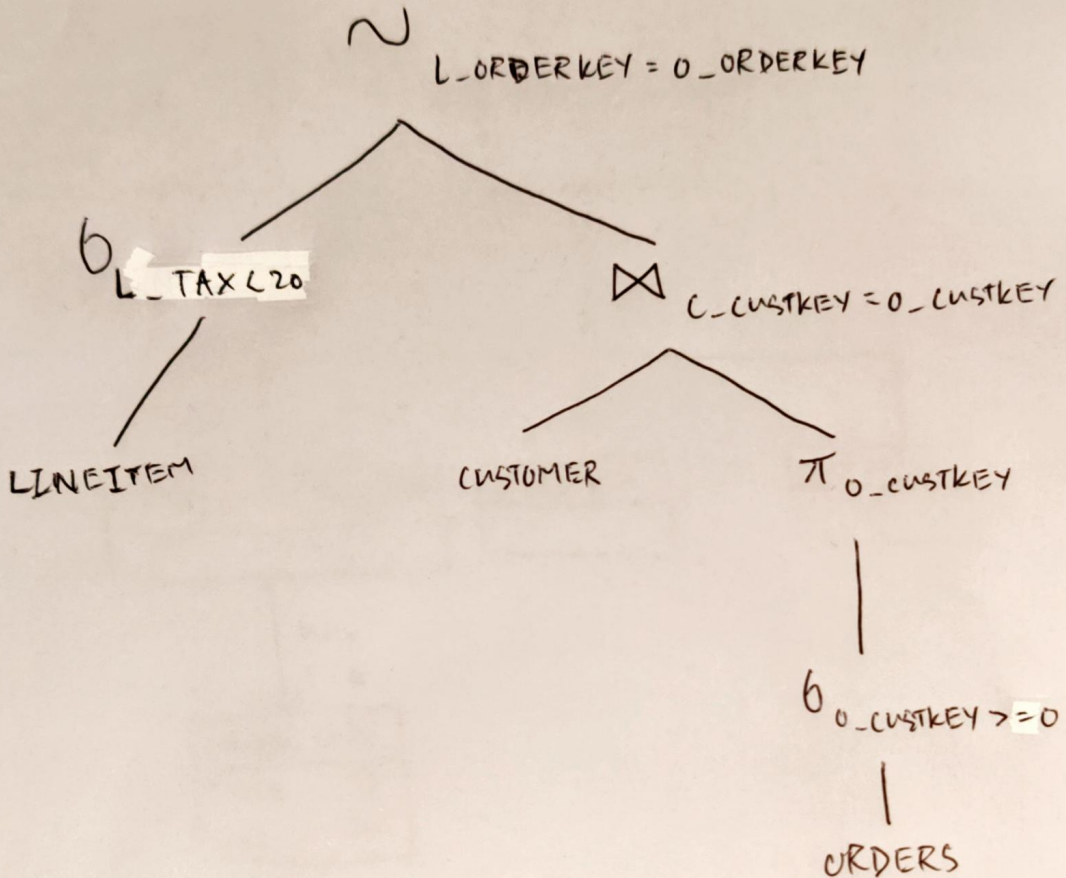 ~ L_ORDERKEY = O_ORDERKEY
σ L_TAX < 20
⋈ C_CUSTKEY = O_CUSTKEY
LINEITEM
CUSTOMER
π O_CUSTKEY
σ O_CUSTKEY >= 0
ORDERS